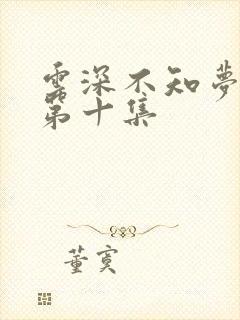 雲深不知夢
第十集
董寞